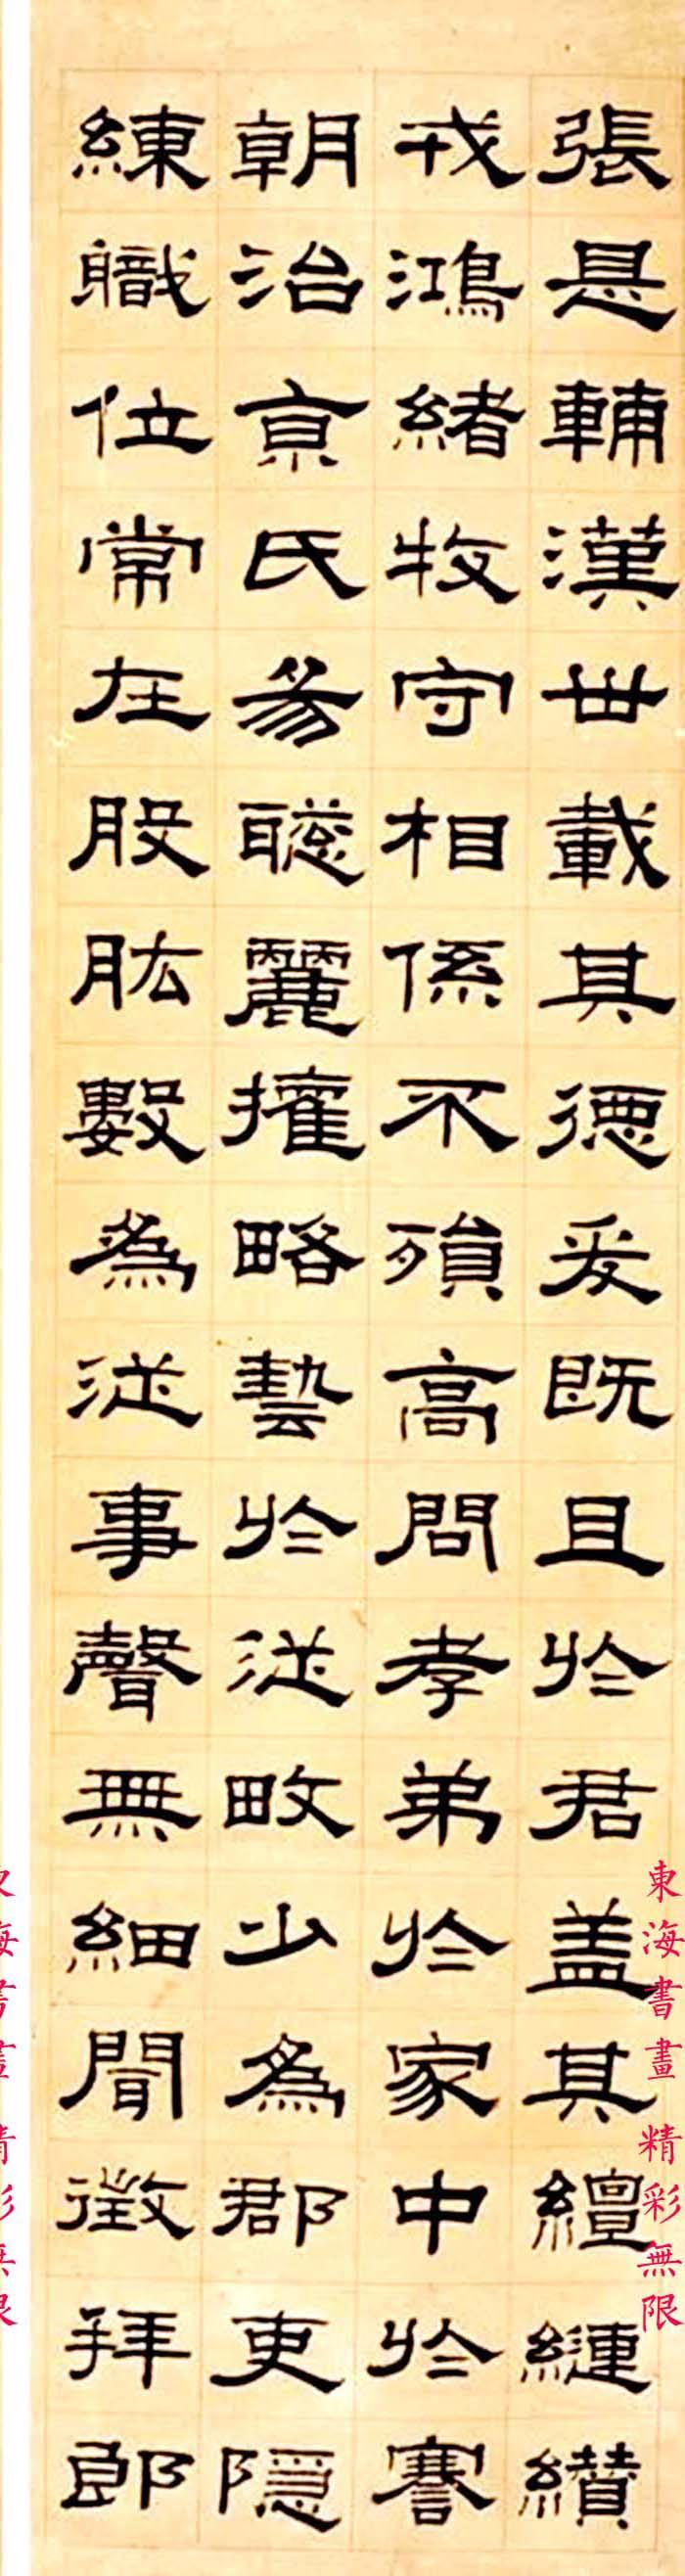 張是輔漢世載其德爰既且於君盖其繵縺纘
戎鴻緒牧守相係不殞高問孝弟於家中於謇
朝治京氏易聰麗權略藝於從畋少為郡吏隱
練職位常在股肱數為從事聲無細聞徵拜郎
東海書畫 精彩無限